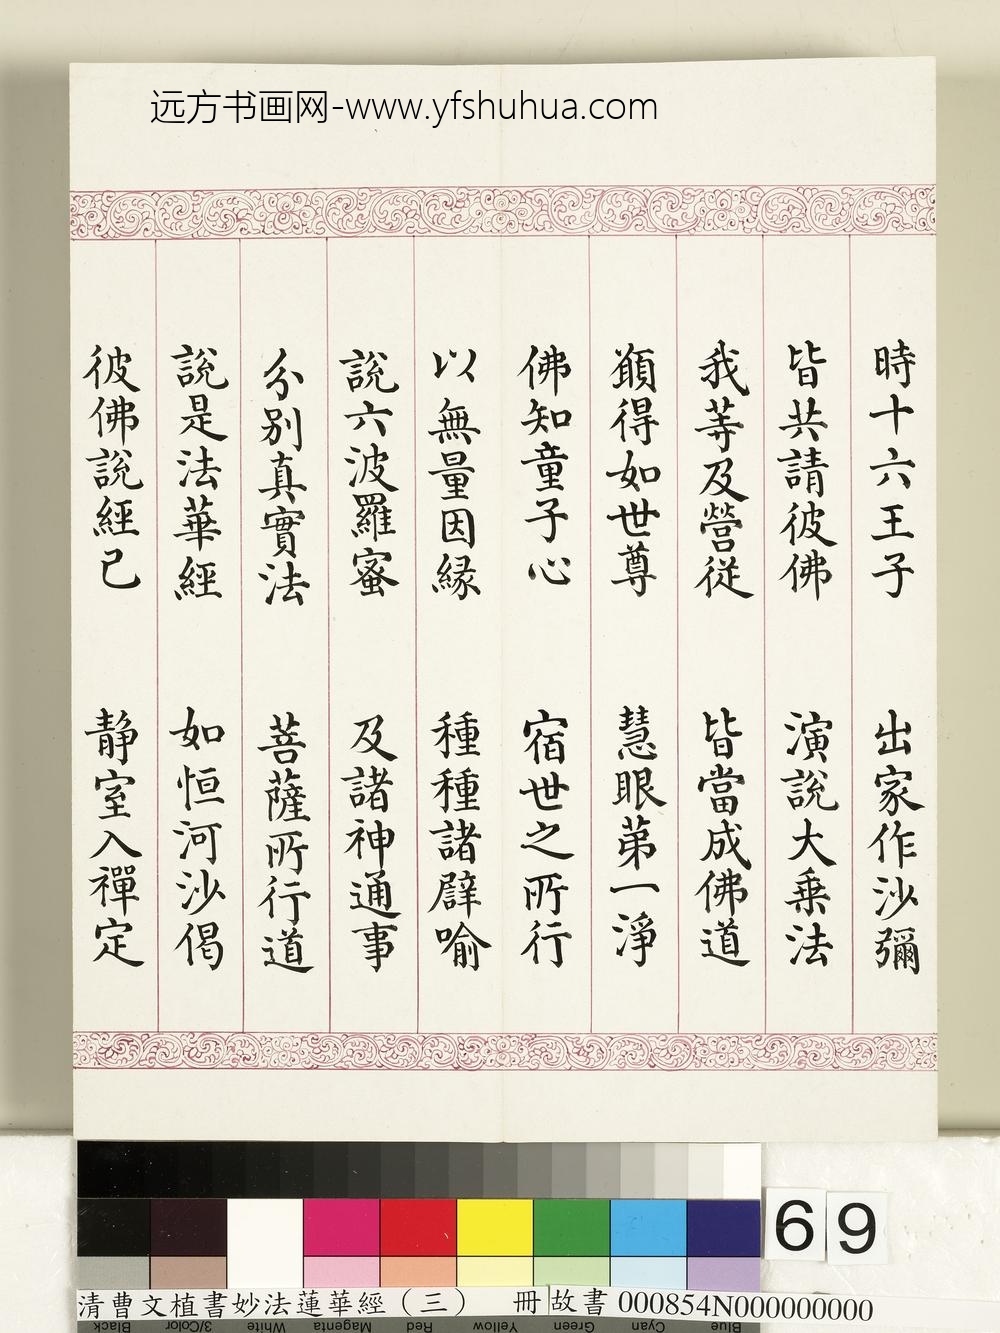 远方书画网-www.yfshuhua.com
時十六王子 出家作沙彌
皆共請彼佛 演說大乗法
我等及營從 皆當成佛道
願得如世尊 慧眼苐一淨
佛知童子心 宿世之所行
以無量因縁 種種諸辟喻
說六波羅蜜 及諸神通事
分別真實法 菩薩所行道
說是法華經 如恒河沙偈
彼佛說經已 静室入禪定
69
清曹文植書妙法蓮華經（三） 冊 故書 000854N000000000
Black 3/Color White Magenta Red Yellow Green Cyan Blue